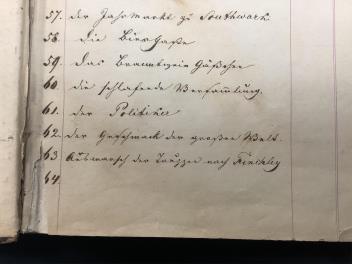 57. der Jahrmarkt zu Southwark.
58. die Bier Gaße
59. das Brauntwein Gäßchen
60. die schlafende Versammlung.
61. der Politiker
62. der Geschmack der großen Welt.
63 Ausmarsch der Truppen nach Finchley
64.